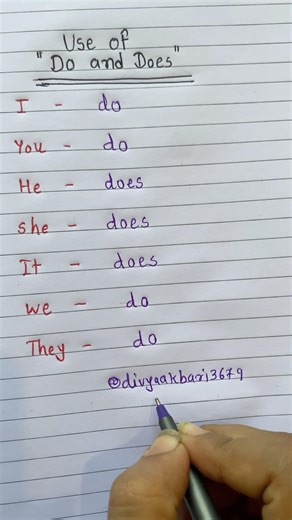 Use of
"Do and Does"
I - do
You - do
He - does
she - does
It - does
we - do
They - do
@divyaakbari3679